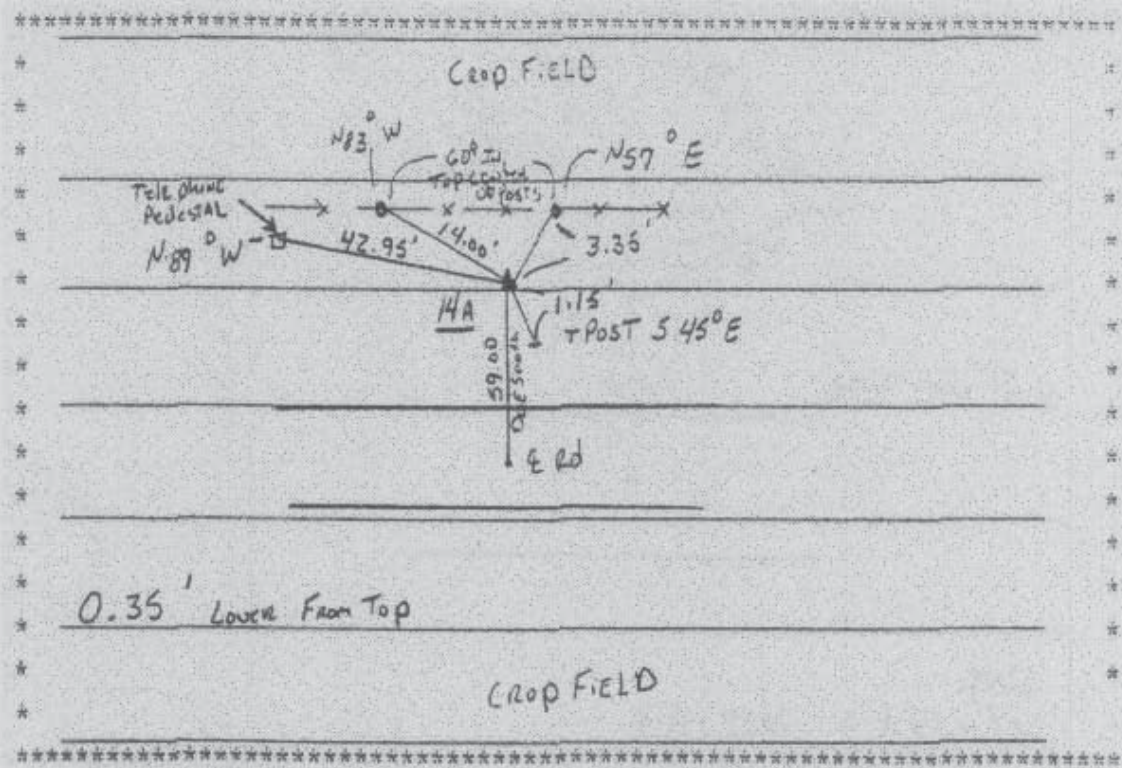 CROP FIELD
N83° W
60d IN
TOP CENTER
OF POSTS
N57° E
TELEPHONE
PEDESTAL
N.89° W
42.95'
14.00'
3.35'
14A
1.15'
T POST S 45° E
59.00
DUE SOUTH
℄ Rd
0.35' LOWER FROM TOP
CROP FIELD